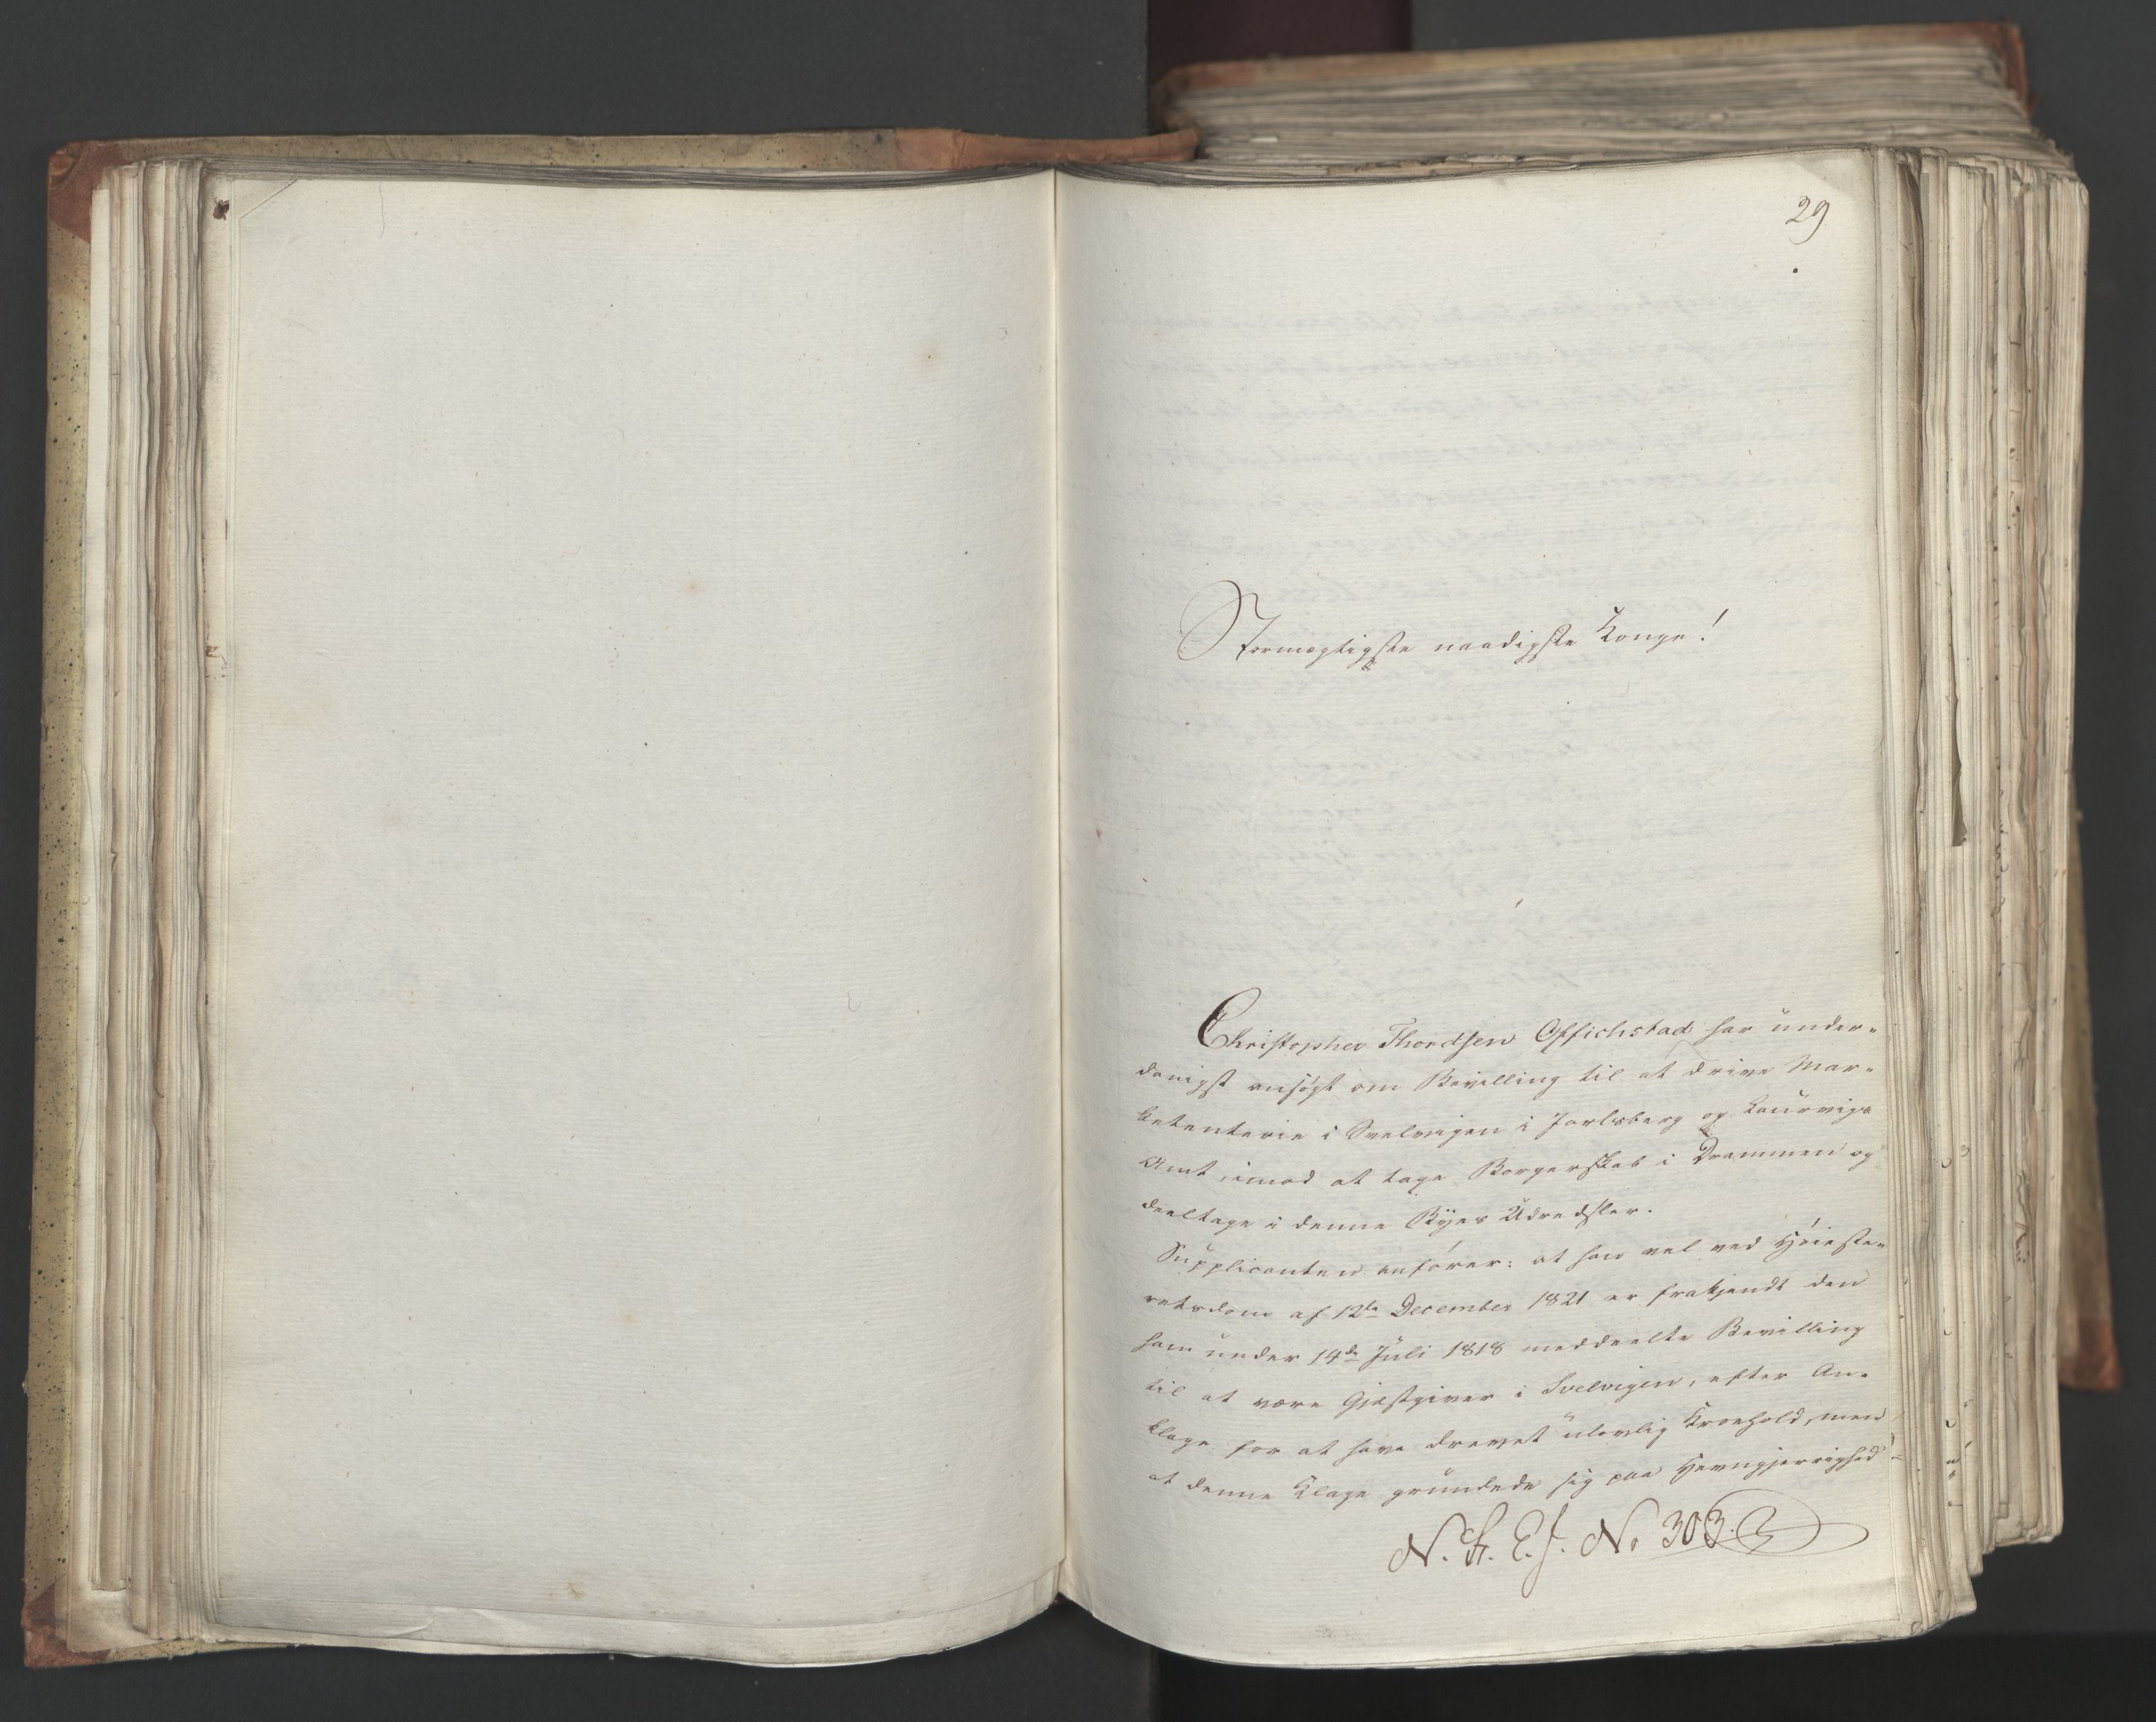 29
Stormægtigste naadigste Konge!
Christopher Thordsen har under-
danigst ansøgt om Bevilling til at drive Mar-
ketenterie i Svelvigen i Jarlsberg og Laurvigs
Amt, imod at tage Borgerskab i Drammen og
deeltage i denne Byes Udredsler.
Supplicanten anfører: at han vel ved Høieste-
retsdom af 12te December 1821 er frakjendt den
ham under 14de Juli 1818 meddeelte Bevilling
til at være Gjæstgiver i Svelvigen, efter An-
klage for at have drevet ulovlig Kroehold, men
at denne Klage grundede sig paa Hevngjerrighed
N. St. E. J. No 303.